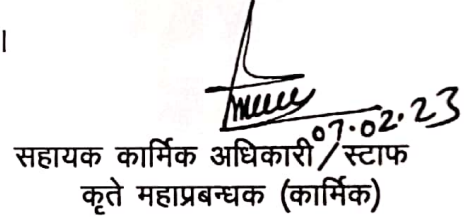 ।
07.02.23
सहायक कार्मिक अधिकारी/स्टाफ
कृते महाप्रबन्धक (कार्मिक)